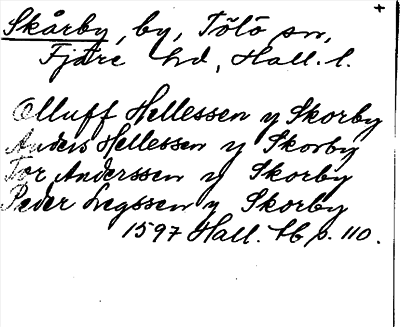 Skårby, by, Tölö sn,
Fjäre hd, Hall. l.
Olluff Hellessen y Skorby
Anders Hellessen y Skorby
Tor Anderssen y Skorby
Peder Legssen y Skorby
1597 Hall. tb p. 110.